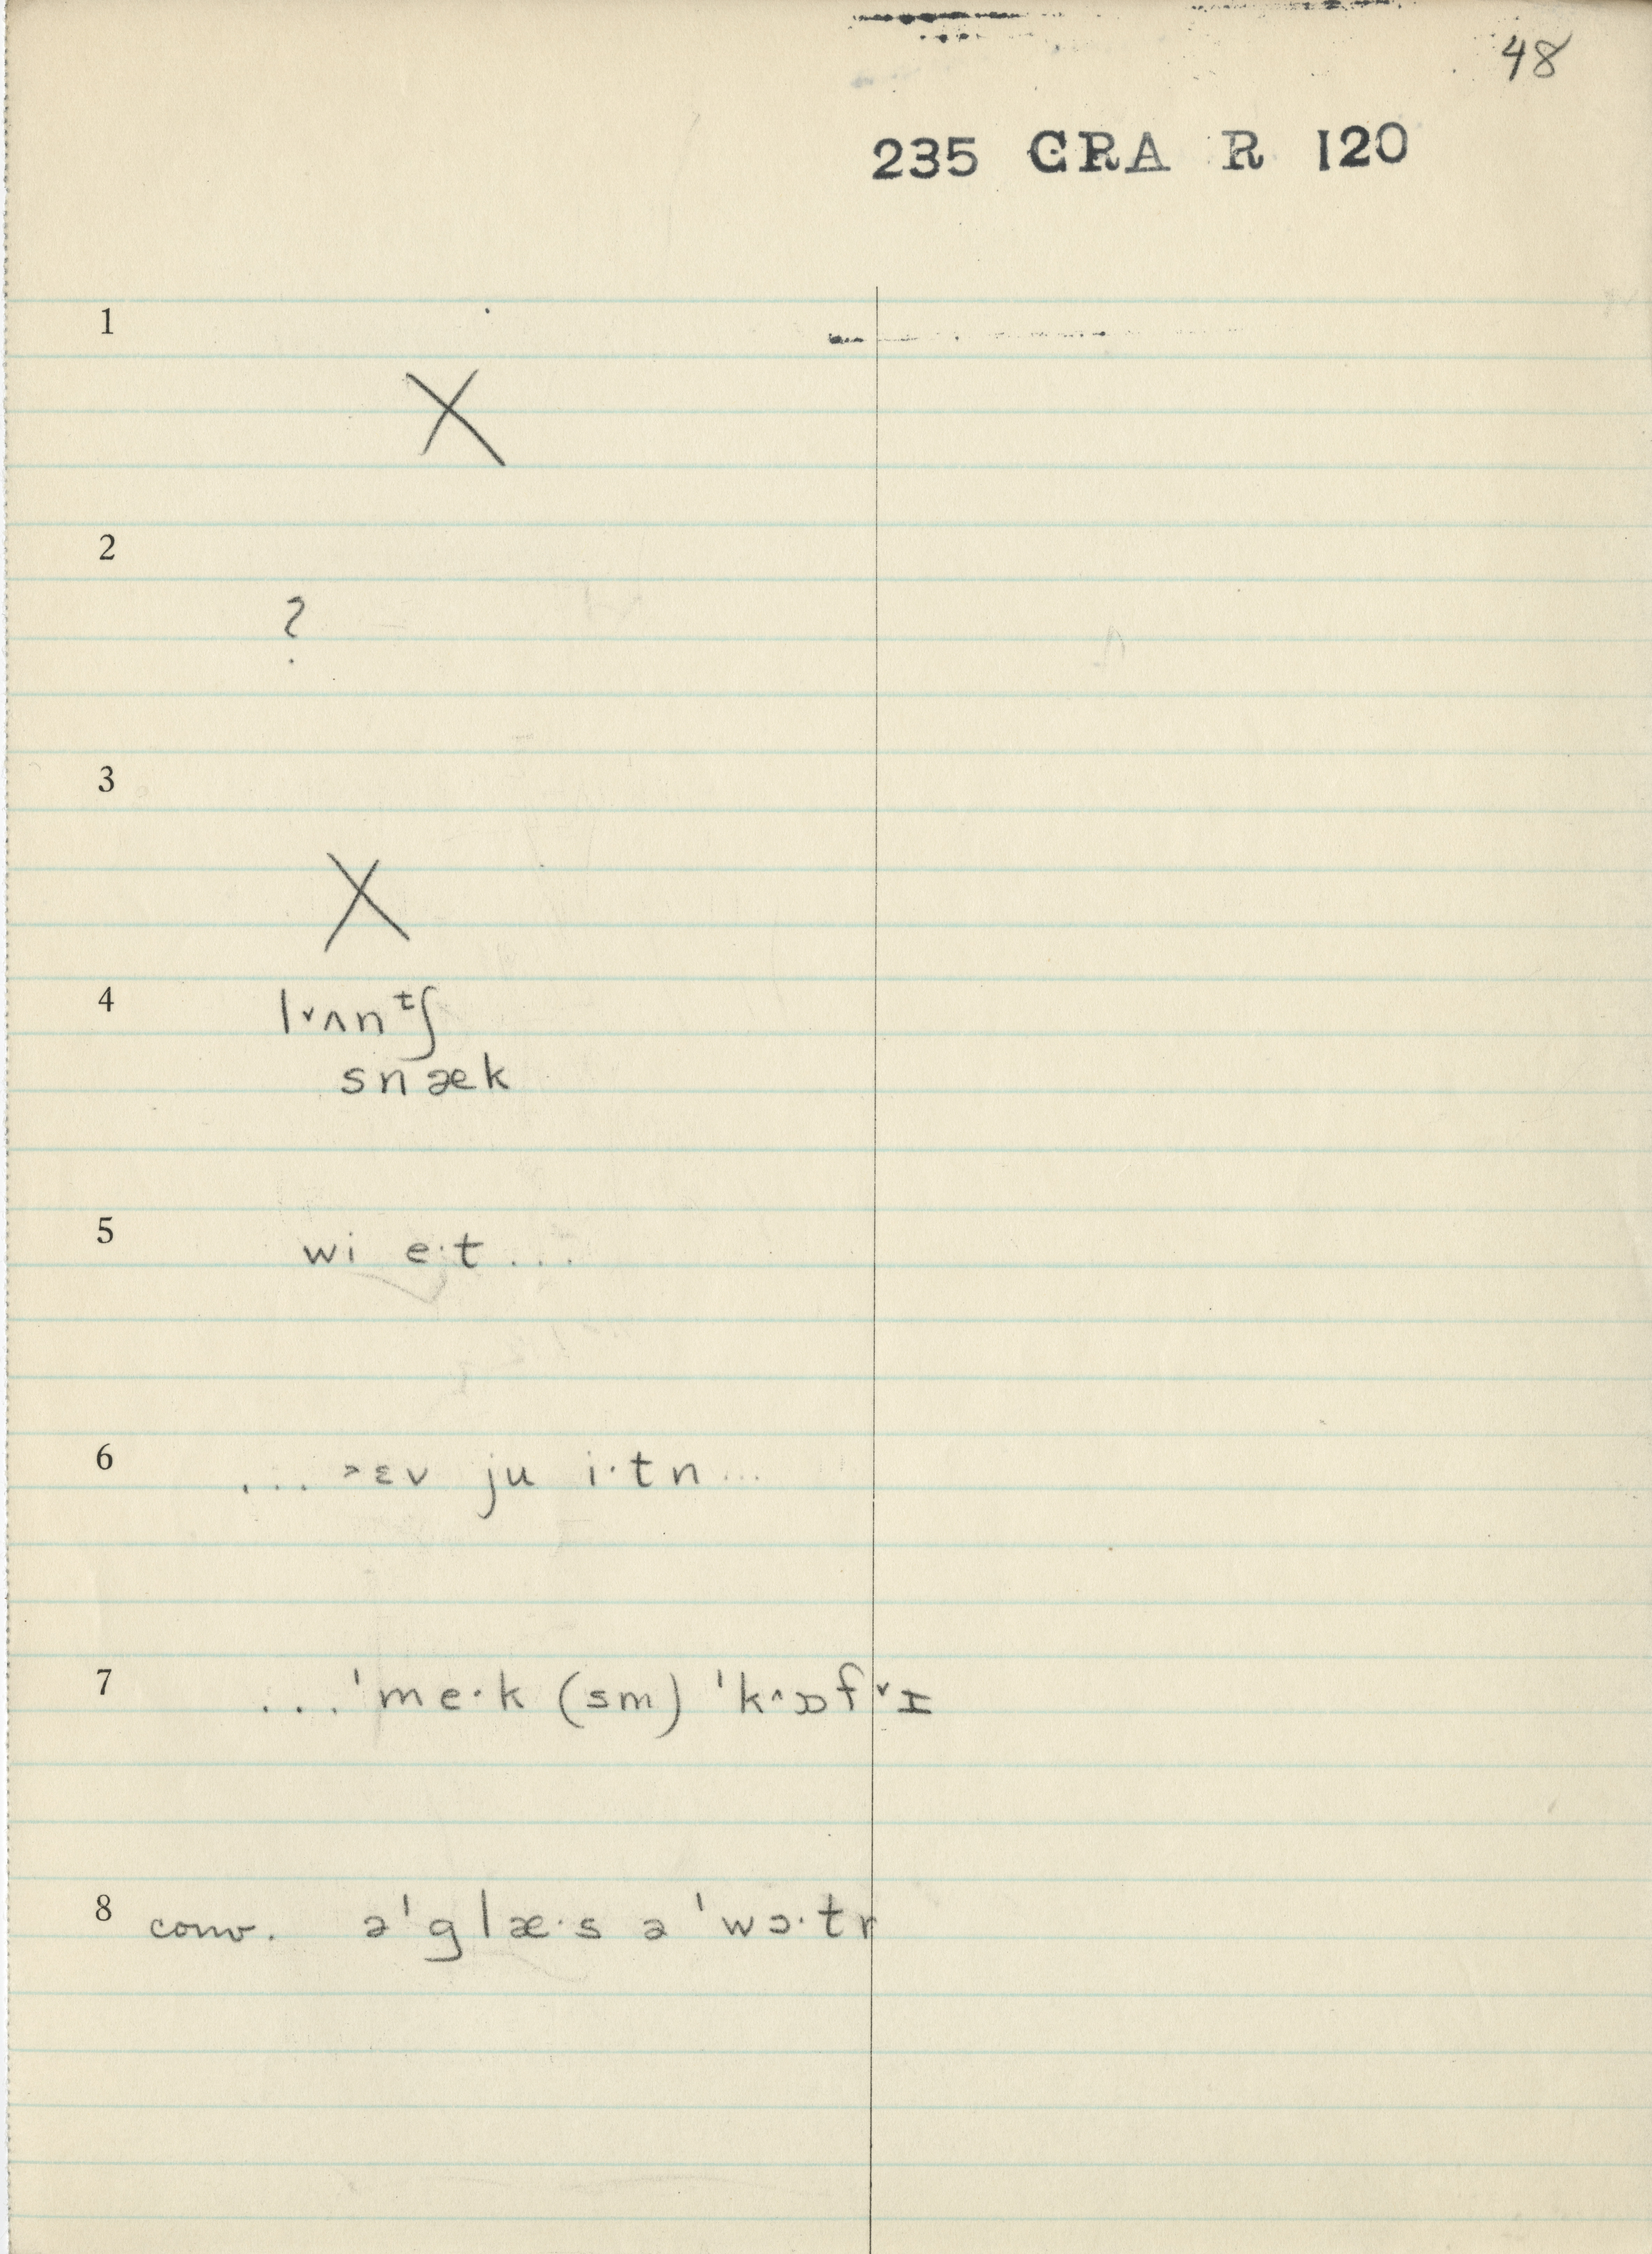 48
235 GRA R 120
1
X
2
?
3
X
4 l˅ʌnᵗʃ
snæk
5 wi e·t ...
6 ... ˃ɛv ju i·tn ...
7 ... ˈme·k (sm) ˈk^ɒf˅ɪ
8 conv. əˈglæ·s ə ˈwɔ·tr